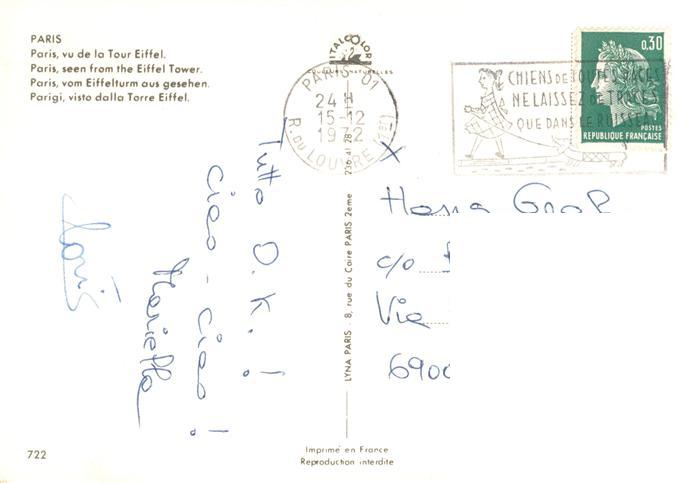 PARIS
Paris, vu de la Tour Eiffel.
Paris, seen from the Eiffel Tower.
Paris, vom Eiffelturm aus gesehen.
Parigi, visto dalla Torre Eiffel.
ITALCOLOR
COULEURS NATURELLES
PARIS 01
24 H
15-12
1972
R. DU LOUVRE (1er)
CHIENS DE TOUTES RACES
NE LAISSEZ DE TRACES
QUE DANS LE RUISSEAU
0,30
POSTES
REPUBLIQUE FRANÇAISE
Tutto O.K.!
ciao - ciao!
Marietta
Loris
LYNA PARIS - 8, rue du Caire PARIS 2ème 236 41 28
c/o
Via
6900
722
Imprimé en France
Reproduction interdite